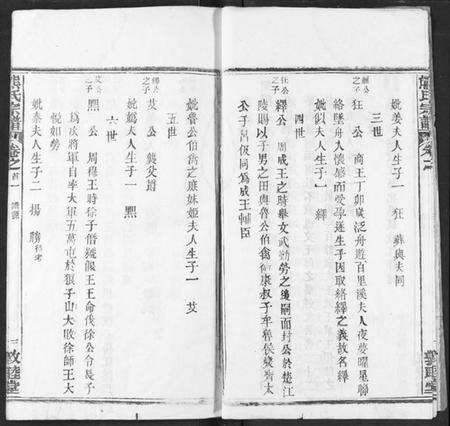 熊氏宗譜
卷之一
敦睦堂
妣姜夫人生子一 狂 葬與夫同
三世
麗公之子
狂公 商王丁卯歲泛舟遊百里溪夫人夜夢曜星聯
絡墜舟入懷感而受孕遂生子因取絡繹之義故名繹
妣似夫人生子一 繹
四世
狂公之子
繹公 周成王之時舉文武勤勞之後嗣而封公於楚江
陵賜以子男之田與魯公伯禽衛康叔子牟晉侯燮齊太
公子呂伋同為成王輔臣
妣魯公伯禽之庶妹姬夫人生子一 艾
五世
繹公之子
艾公 襲父爵
妣鶯夫人生子一 䵣
六世
艾公之子
䵣公 周穆王時徐子僭號偃王王命伐徐公令長子
為次將軍自率大軍五萬屯於狼子山大敗徐師王大
悅如勞
妣秦夫人生子二 揚 勝待考
熊氏宗譜
卷之首一
二
敦睦堂